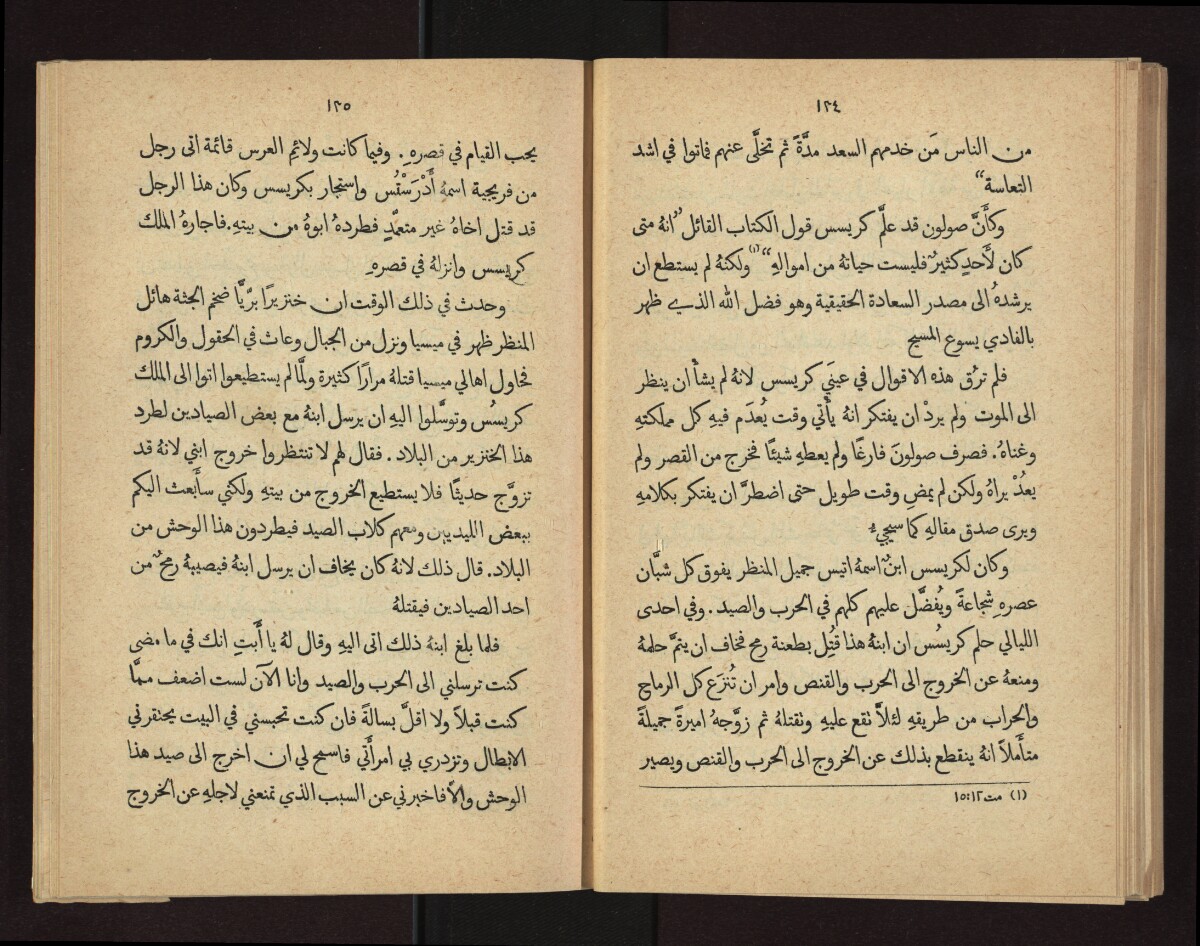 ١٢٤
من الناس مَن خدمهم السعد مدَّةً ثم تخلَّى عنهم فماتوا في اشد
التعاسة“
وكأَنَّ صولون قد علَّم كريسس قول الكتاب القائل ”انهُ متى
كان لأَحدٍ كثيرٌ فليست حياتهُ من اموالهِ“(١) ولكنهُ لم يستطع ان
يرشدهُ الى مصدر السعادة الحقيقية وهو فضل الله الذي ظهر
بالفادي يسوع المسيح
فلم ترُق هذه الاقوال في عينَي كريسس لانهُ لم يشأْ ان ينظر
الى الموت ولم يردْ ان يفتكر انهُ يأْتي وقت يُعدَم فيهِ كل مملكتهِ
وغناهُ. فصرف صولونَ فارغًا ولم يعطهِ شيئًا فخرج من القصر ولم
يعُدْ يراهُ ولكن لم يمضِ وقت طويل حتى اضطرَّ ان يفتكر بكلامهِ
ويرى صدق مقالهِ كما سيجيءُ
وكان لكريسس ابنٌ اسمهُ اتيس جميل المنظر يفوق كل شبَّان
عصرهِ شجاعةً ويُفضَّل عليهم كلهم في الحرب والصيد. وفي احدى
الليالي حلم كريسُس ان ابنهُ هذا قُتِل بطعنة رمح فخاف ان يتمَّ حلمهُ
ومنعهُ عن الخروج الى الحرب والقنص وامر ان تُنزَع كل الرماح
والحراب من طريقهِ لئلَّا تقع عليهِ وتقتلهُ ثم زوَّجهُ اميرةً جميلةً
متأَملاً انهُ ينقطع بذلك عن الخروج الى الحرب والقنص ويصير
(١) مت١٢:١٥
١٢٥
يحب القيام في قصرهِ. وفيما كانت ولائم العرس قائمة اتى رجل
من فريجية اسمهُ أَدْرَسْتُس واستجار بكريسس وكان هذا الرجل
قد قتل اخاهُ غير متعمِّدٍ فطردهُ ابوهُ من بيتهِ. فاجارهُ الملك
كريسس وانزلهُ في قصرهِ
وحدث في ذلك الوقت ان خنزيرًا برّيًّا ضخم الجثة هائل
المنظر ظهر في ميسيا ونزل من الجبال وعاث في الحقول والكروم
فحاول اهالي ميسيا قتلهُ مرارًا كثيرة ولمَّا لم يستطيعوا اتوا الى الملك
كريسُس وتوسَّلوا اليهِ ان يرسل ابنهُ مع بعض الصيادين لطرد
هذا الخنزير من البلاد. فقال لهم لا تنتظروا خروج ابني لانهُ قد
تزوَّج حديثًا فلا يستطيع الخروج من بيتهِ ولكني سأَبعث اليكم
ببعض الليديين ومعهم كلاب الصيد فيطردون هذا الوحش من
البلاد. قال ذلك لانهُ كان يخاف ان يرسل ابنهُ فيصيبهُ رمحٌ من
احد الصيادين فيقتلهُ
فلما بلغ ابنهُ ذلك اتى اليهِ وقال لهُ يا أَبتِ انك في ما مضى
كنت ترسلني الى الحرب والصيد وانا الآن لست اضعف ممَّا
كنت قبلاً ولا اقلَّ بسالةً فان كنت تحبسني في البيت يحتقرني
الابطال وتزدري بي امرأَتي فاسمح لي ان اخرج الى صيد هذا
الوحش والَّا فاخبرني عن السبب الذي تمنعني لاجلهِ عن الخروج